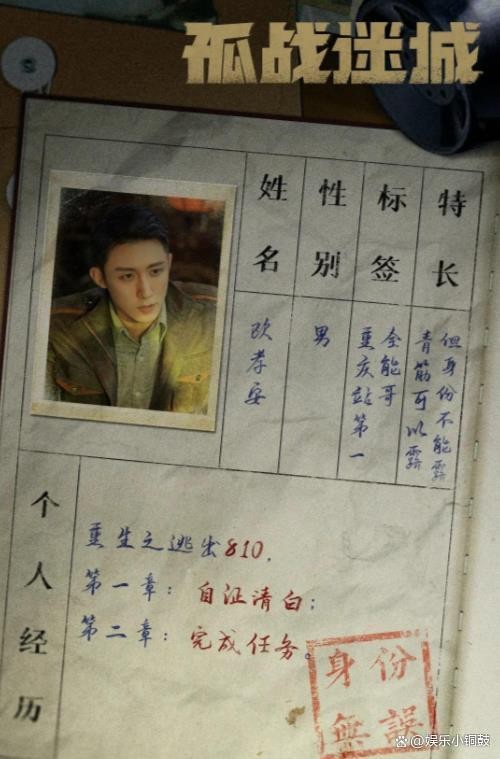 孤战迷城
姓名
性别
标签
特长
欧孝安
男
重庆站第一
全能哥
青筋可以露
但身份不能露
个人经历
重生之逃出810，
第一章：自证清白；
第二章：完成任务。
身份
無誤
娱乐小铜鼓